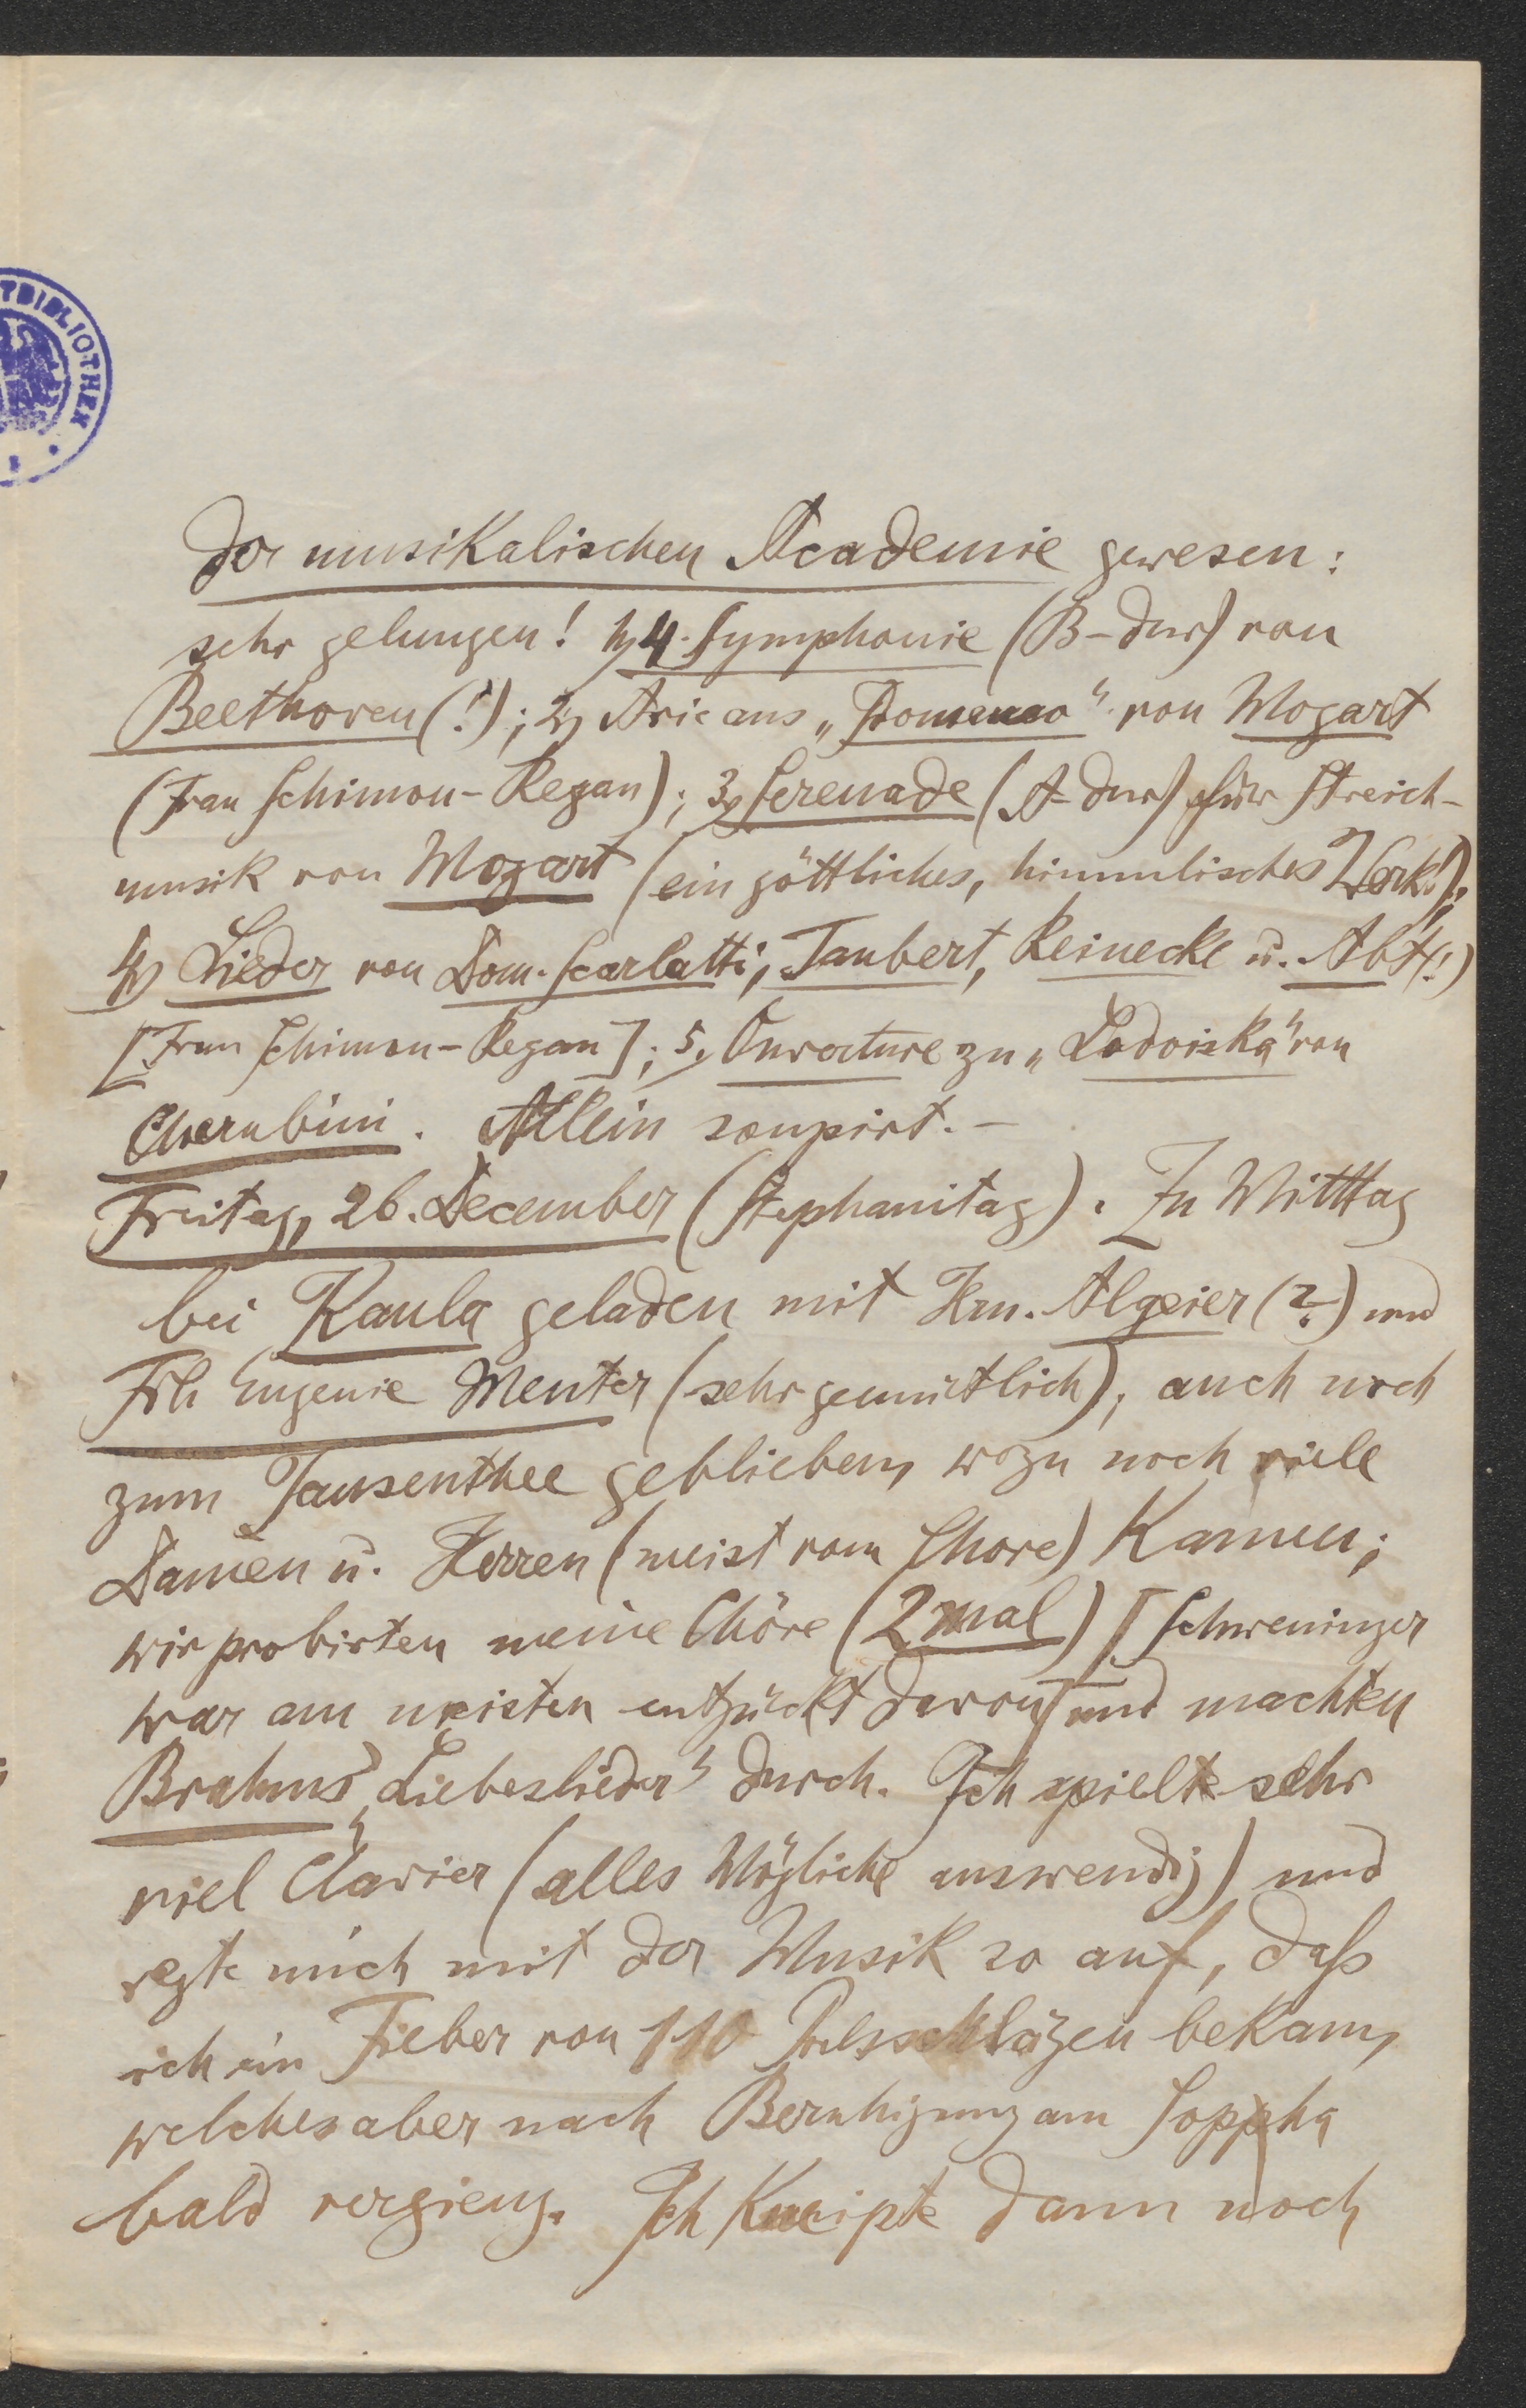 TBIBLIOTHEK
der musikalischen Academie gewesen:
sehr gelungen! 1) 4. Symphonie (B-dur) von
Beethoven (!); 2) Arie aus „Idomeneo" von Mozart
(Frau Schimon-Regan); 3) Serenade (A-dur) für Streich-
musik von Mozart (ein göttliches, himmlisches Werk!);
4) Lieder von Dom. Scarlatti, Taubert, Reinecke u. Abt (!)
[Frau Schimon-Regan]; 5) Ouverture zu „Lodoiska" von
Cherubini. Allein soupirt. –
Freitag, 26. December (Stephanitag). Zu Mitttag
bei Kaula geladen mit Hrn. Algeier (?) und
Frl. Eugenie Menter (sehr gemütlich), auch noch
zum Jausenthee geblieben, wozu noch viele
Damen u. Herren (meist vom Chore) kamen;
wir probirten meine Chöre (2 mal) [Schweninger
war am meisten entzückt davon] und machten
Brahms' „Liebeslieder" durch. Ich spielte sehr
viel Clavier (alles Mögliche auswendig) und
regte mich mit der Musik so auf, daß
ich ein Fieber von 110 Pulsschlägen bekam,
welches aber nach Beruhigung am Sopha
bald vergieng. Ich kneipte dann noch